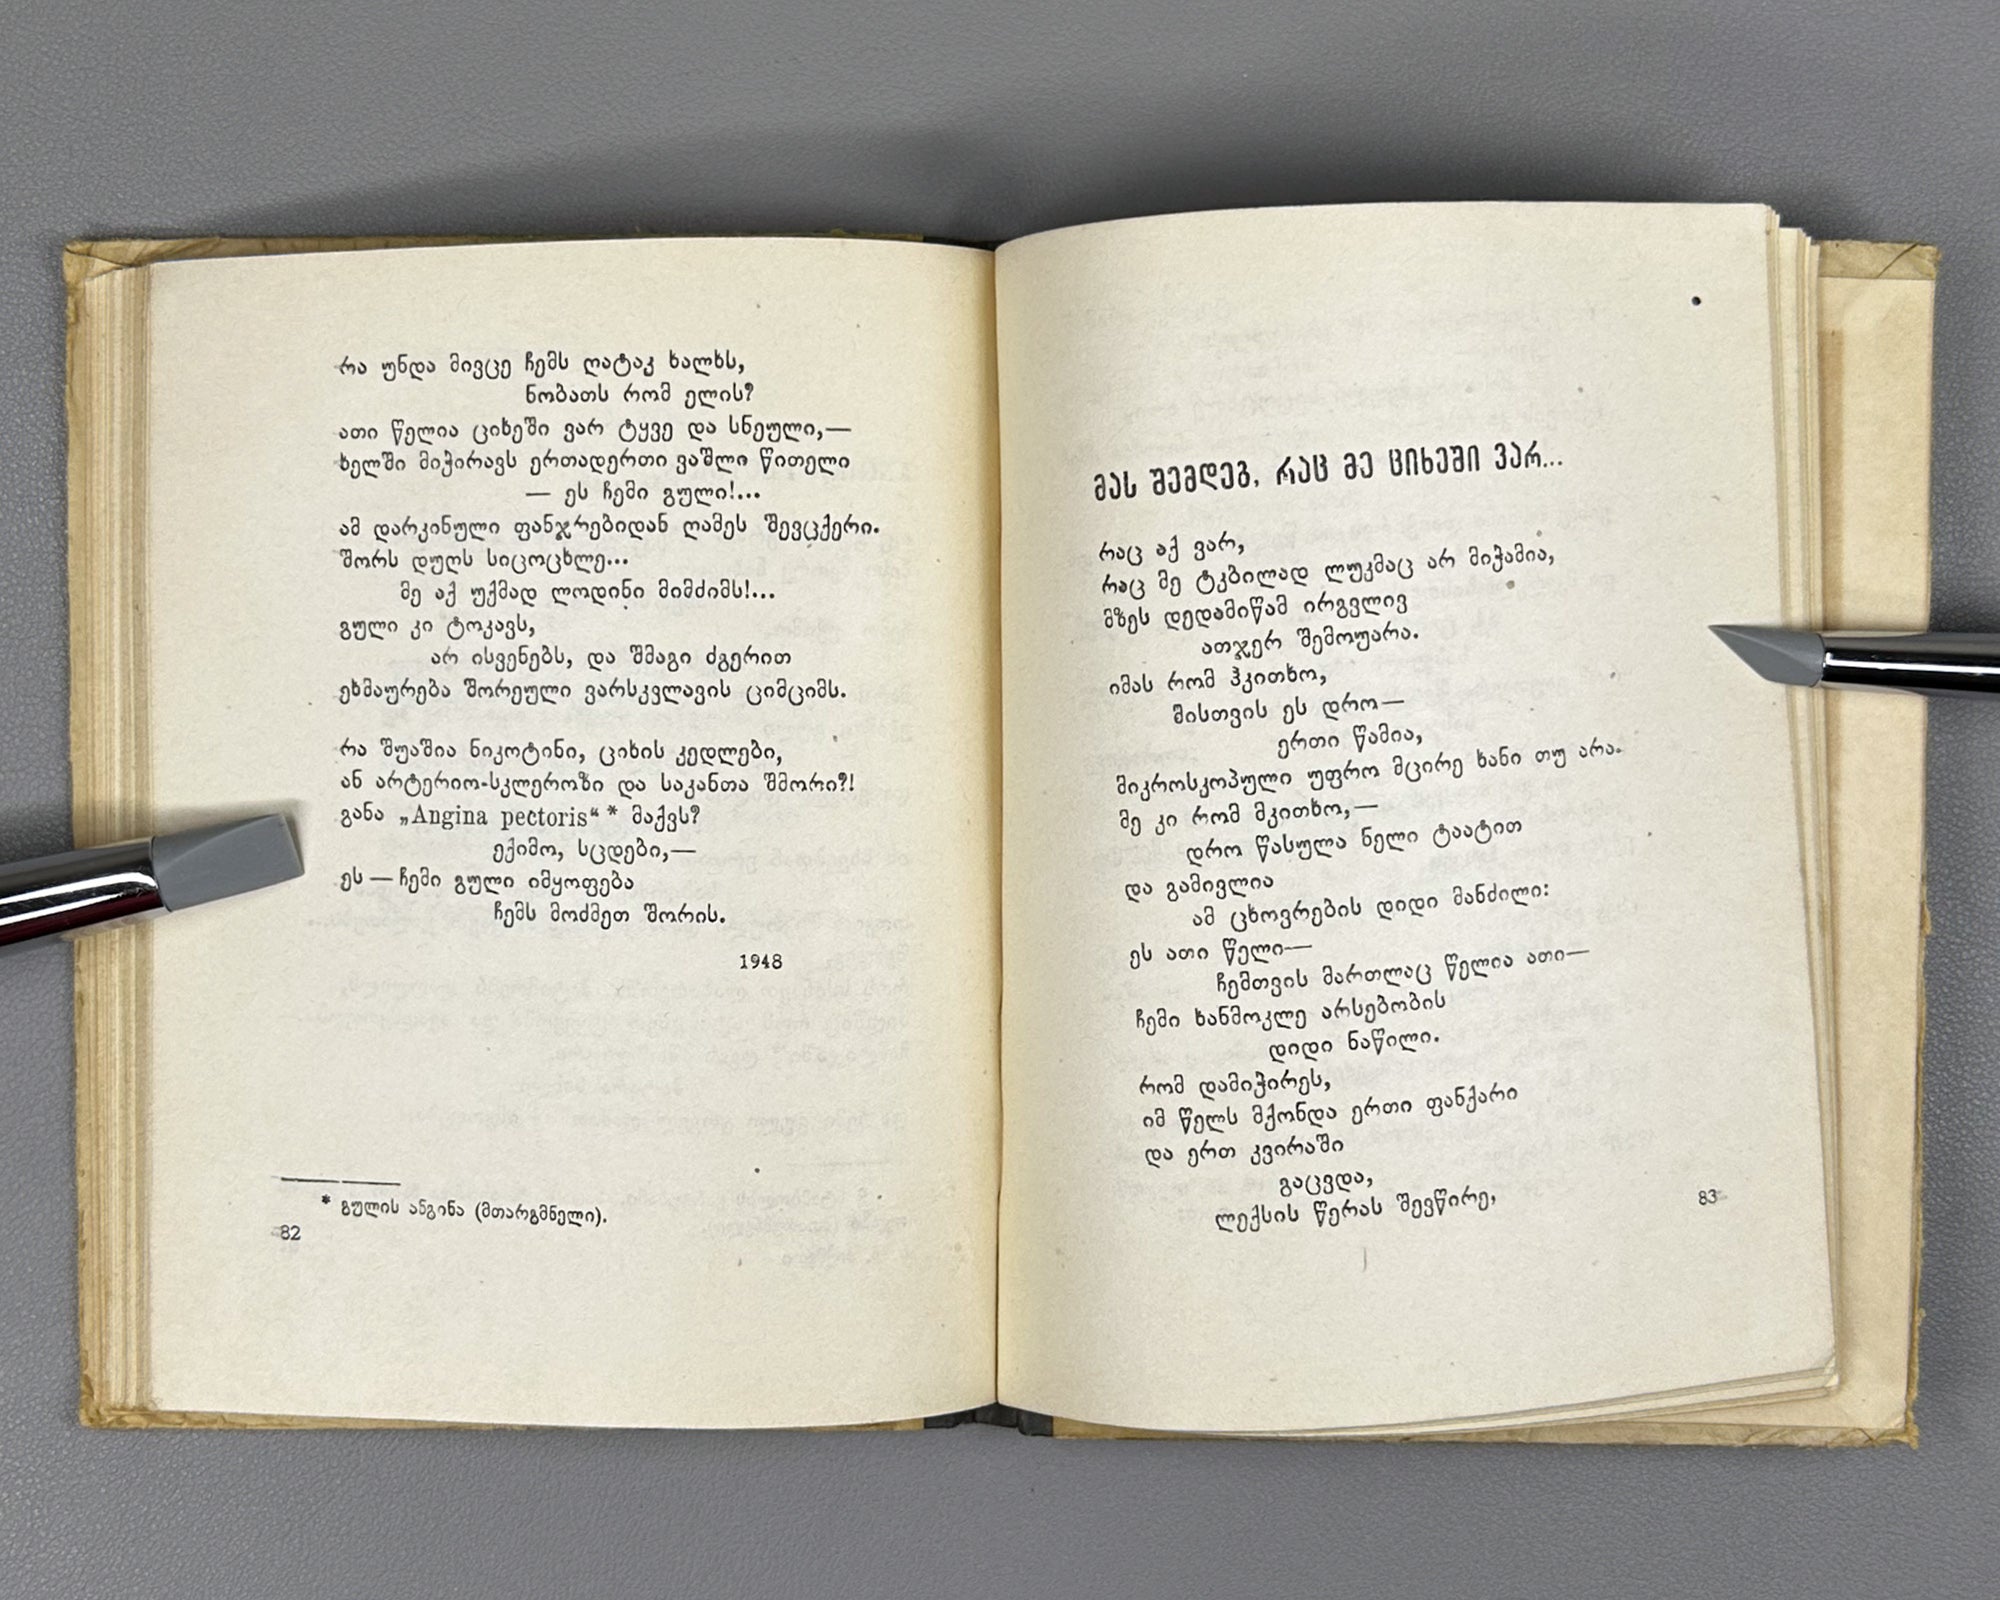 რა უნდა მივცე ჩემს ღატაკ ხალხს,
ნობათს რომ ელის?
ათი წელია ციხეში ვარ ტყვე და სნეული,—
ხელში მიჭირავს ერთადერთი ვაშლი წითელი
— ეს ჩემი გული!...
ამ დარკინული ფანჯრებიდან ღამეს შევცქერი.
შორს დუღს სიცოცხლე...
მე აქ უქმად ლოდინი მიმძიმს!...
გული კი ტოკავს,
არ ისვენებს, და შმაგი ძგერით
ეხმაურება შორეული ვარსკვლავის ციმციმს.
რა შუაშია ნიკოტინი, ციხის კედლები,
ან არტერიო-სკლეროზი და საკანთა შმორი?!
განა „Angina pectoris“ * მაქვს?
ექიმო, სცდები,—
ეს — ჩემი გული იმყოფება
ჩემს მოძმეთ შორის.
1948
* გულის ანგინა (მთარგმნელი).
82
მას შემდეგ, რაც მე ციხეში ვარ...
რაც აქ ვარ,
რაც მე ტკბილად ლუკმაც არ მიჭამია,
მზეს დედამიწამ ირგვლივ
ათჯერ შემოუარა.
იმას რომ ჰკითხო,
მისთვის ეს დრო—
ერთი წამია,
მიკროსკოპული უფრო მცირე ხანი თუ არა.
მე კი რომ მკითხო,—
დრო წასულა ნელი ტაატით
და გამივლია
ამ ცხოვრების დიდი მანძილი:
ეს ათი წელი—
ჩემთვის მართლაც წელია ათი—
ჩემი ხანმოკლე არსებობის
დიდი ნაწილი.
რომ დამიჭირეს,
იმ წელს მქონდა ერთი ფანქარი
და ერთ კვირაში
გაცვდა,
ლექსის წერას შევწირე,
83